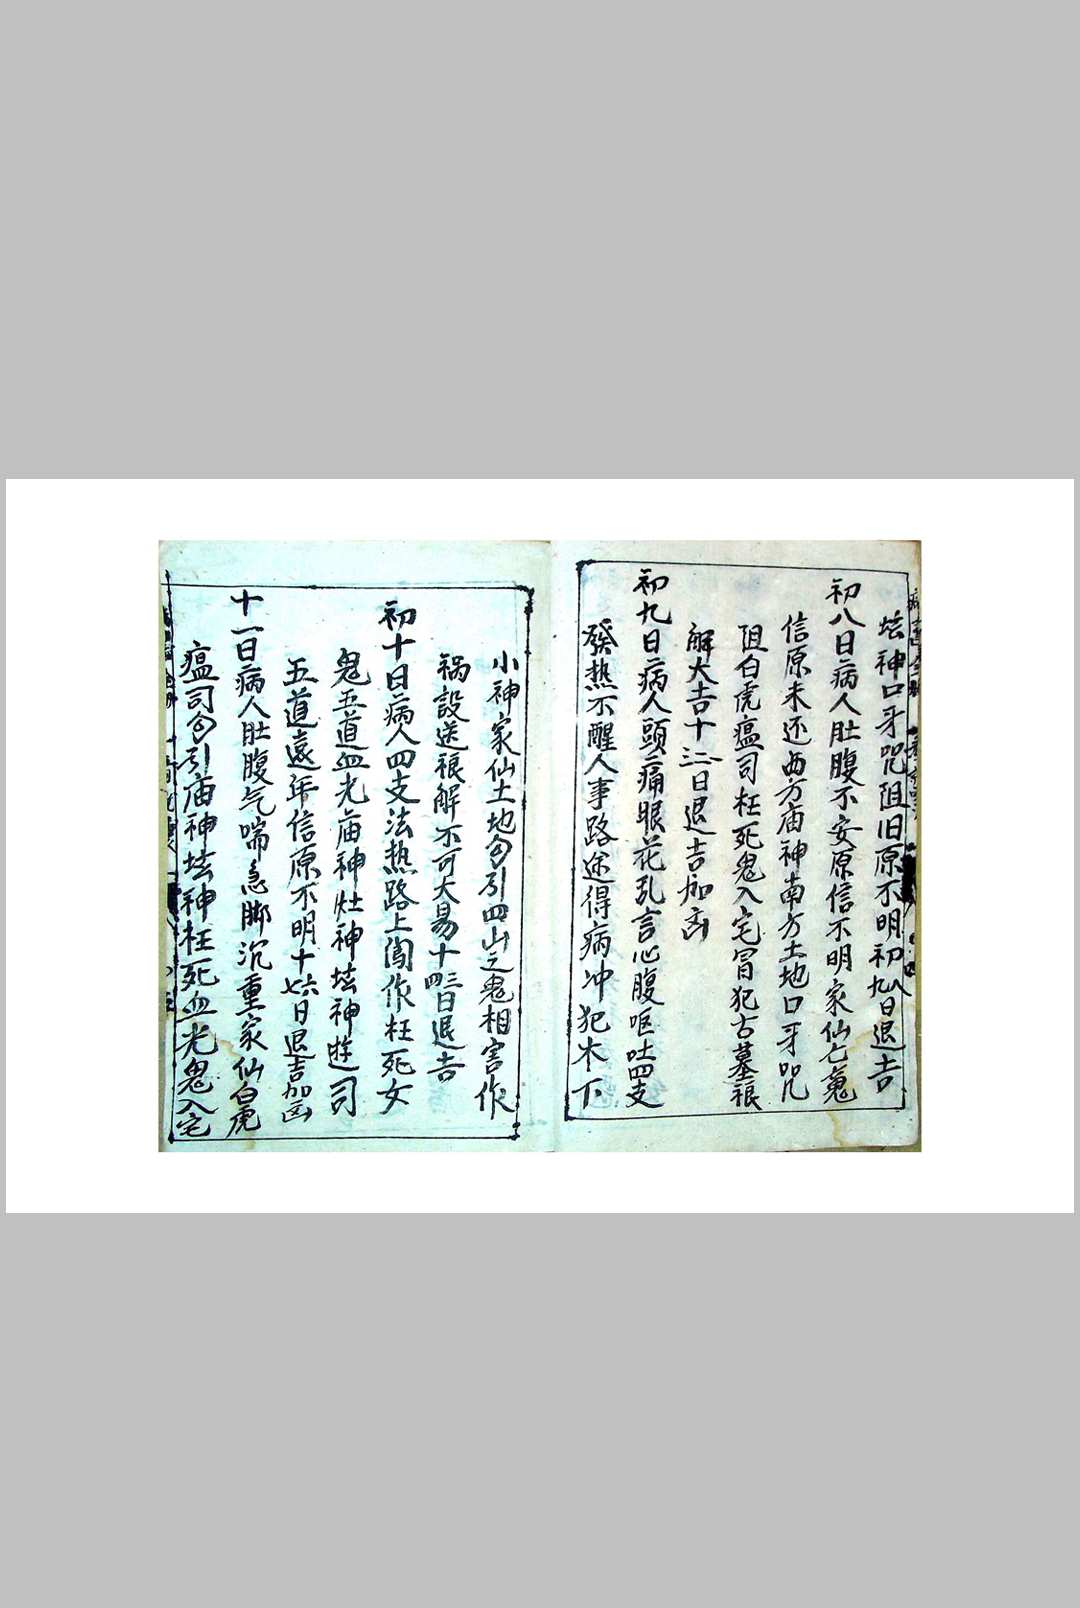 坛神口牙咒阻旧原不明初八九日退吉
初八日病人肚腹不安原信不明家仙七魂
信原未还西方庙神南方土地口牙咒
阻白虎瘟司枉死鬼入宅冒犯古墓禳
解大吉十二三日退吉加
初九日病人頭痛眼花乱言心腹呕吐四支
發热不醒人事路途得病冲犯木下
小神家仙土地勾引四山之鬼相害作
祸設送禳解不可大易十三四日退吉
初十日病人四支法热路上闯作枉死女
鬼五道血光庙神灶神坛神遊司
五道遠年信原不明十六七日退吉加
十一日病人肚腹气喘急脚沉重家仙白虎
瘟司勾引庙神坛神枉死血光鬼入宅